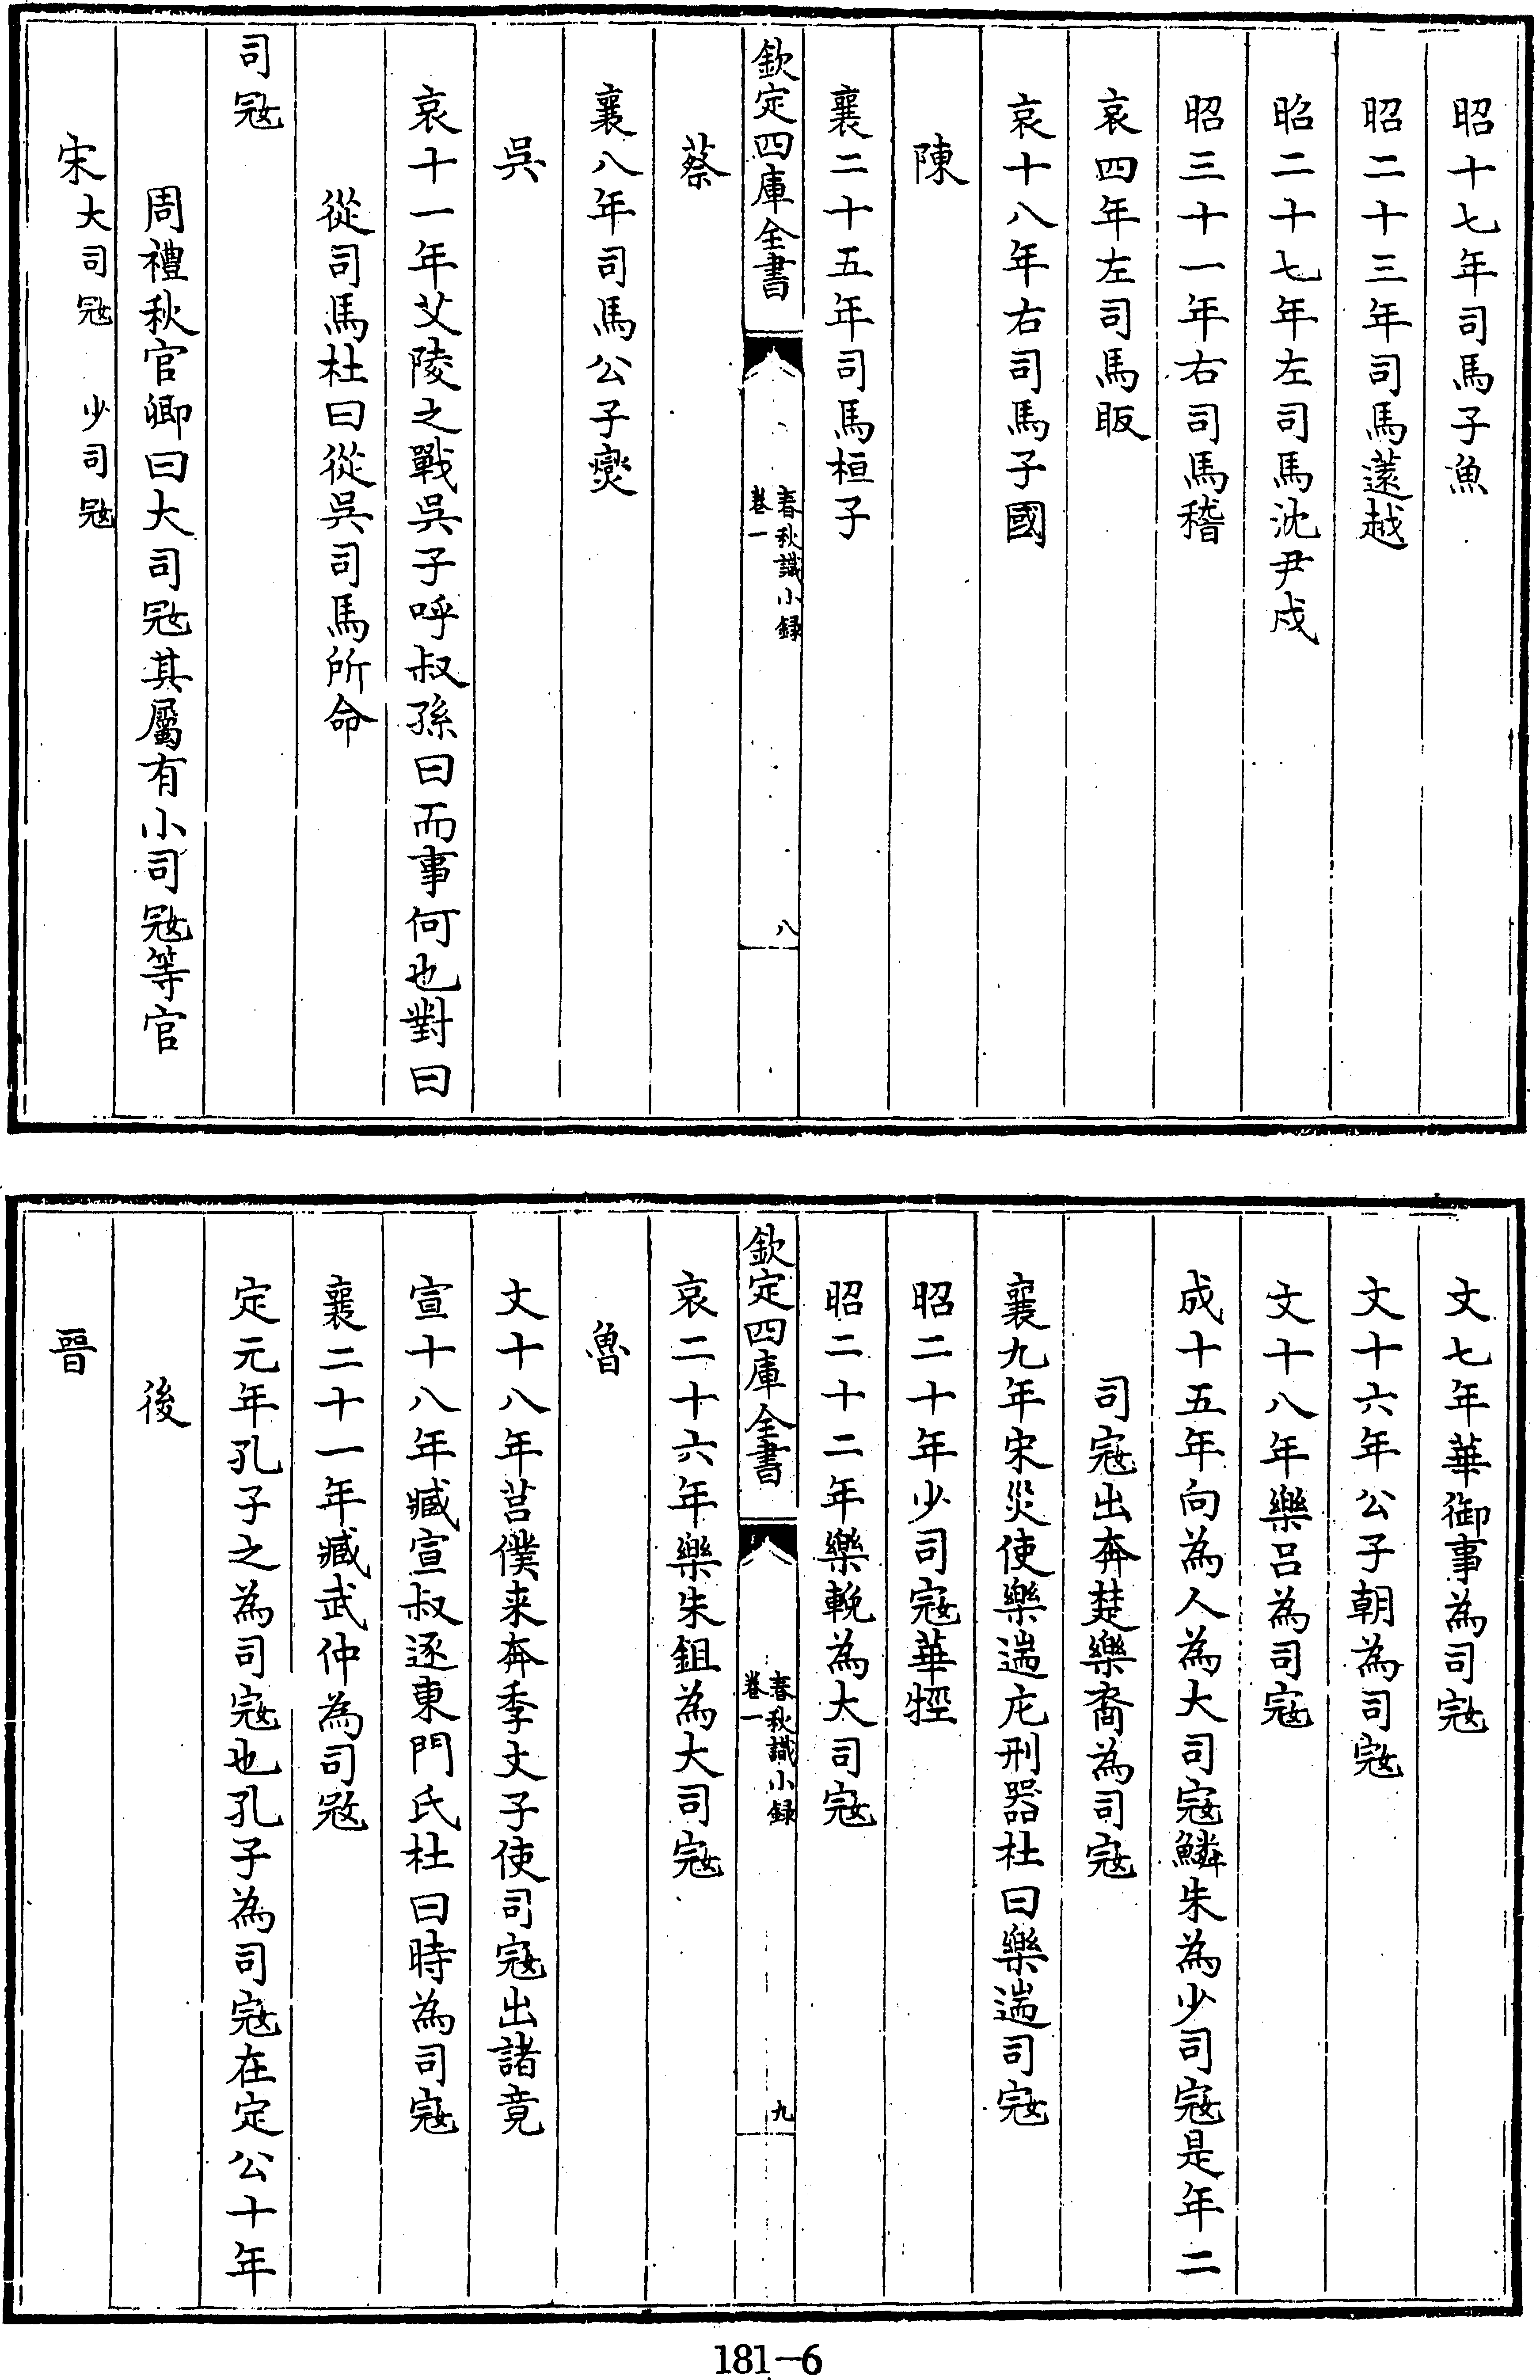 昭十七年司馬子魚
昭二十三年司馬薳越
昭二十七年左司馬沈尹戍
昭三十一年右司馬稽
哀四年左司馬眅
哀十八年右司馬子國
陳
襄二十五年司馬桓子
欽定四庫全書
春秋識小錄
卷一
八
蔡
襄八年司馬公子燮
吳
哀十一年艾陵之戰吳子呼叔孫曰而事何也對曰
從司馬杜曰從吳司馬所命
司冦
周禮秋官卿曰大司冦其屬有小司冦等官
宋大司冦 少司冦
文七年華御事為司寇
文十六年公子朝為司寇
文十八年樂呂為司寇
成十五年向為人為大司寇鱗朱為少司寇是年二
司寇出奔楚樂裔為司寇
襄九年宋災使樂遄庀刑器杜曰樂遄司寇
昭二十年少司寇華牼
昭二十二年樂輓為大司寇
欽定四庫全書
春秋識小錄
卷一
九
哀二十六年樂朱鉏為大司寇
魯
文十八年莒僕来奔季文子使司寇出諸竟
宣十八年臧宣叔逐東門氏杜曰時為司寇
襄二十一年臧武仲為司冦
定元年孔子之為司寇也孔子為司寇在定公十年
後
晉
181-6